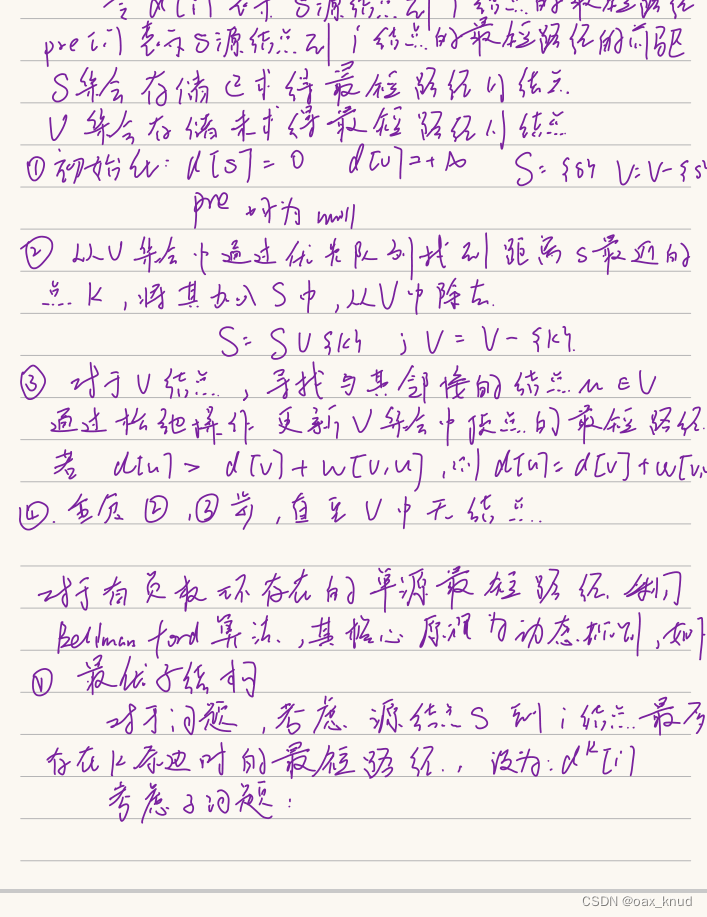 令 d[i] 表示 S源结点到 i 结点的最短路径
pre[i] 表示S源结点到 i 结点的最短路径的前驱
S集合存储已求得最短路径的结点.
V 集合存储未求得最短路径的结点
① 初始化: d[S]=0 d[v]=+∞ S={s} V=V-{s}
pre 均为 null
② 从V集合中通过优先队列找到距离s最近的
点 K, 将其加入 S 中, 从V中除去.
S= S∪{K} ; V = V - {K}.
③ 对于 V 结点, 寻找与其邻接的结点 u ∈V
通过松弛操作 更新 V 集合中顶点的最短路径.
若 d[u] > d[v] + w[v,u], 则 d[u]= d[v]+w[v,u
④. 重复 ②,③步, 直至 V 中无结点.
对于有负权 环存在的单源最短路径. 利用
Bellman ford 算法, 其核心原理为动态规划, 如
① 最优子结构
对于问题, 考虑 源结点 S 到 i 结点最多
存在 K 条边时的最短路径., 设为: dᴷ[i]
考虑子问题:
CSDN @oax_knud